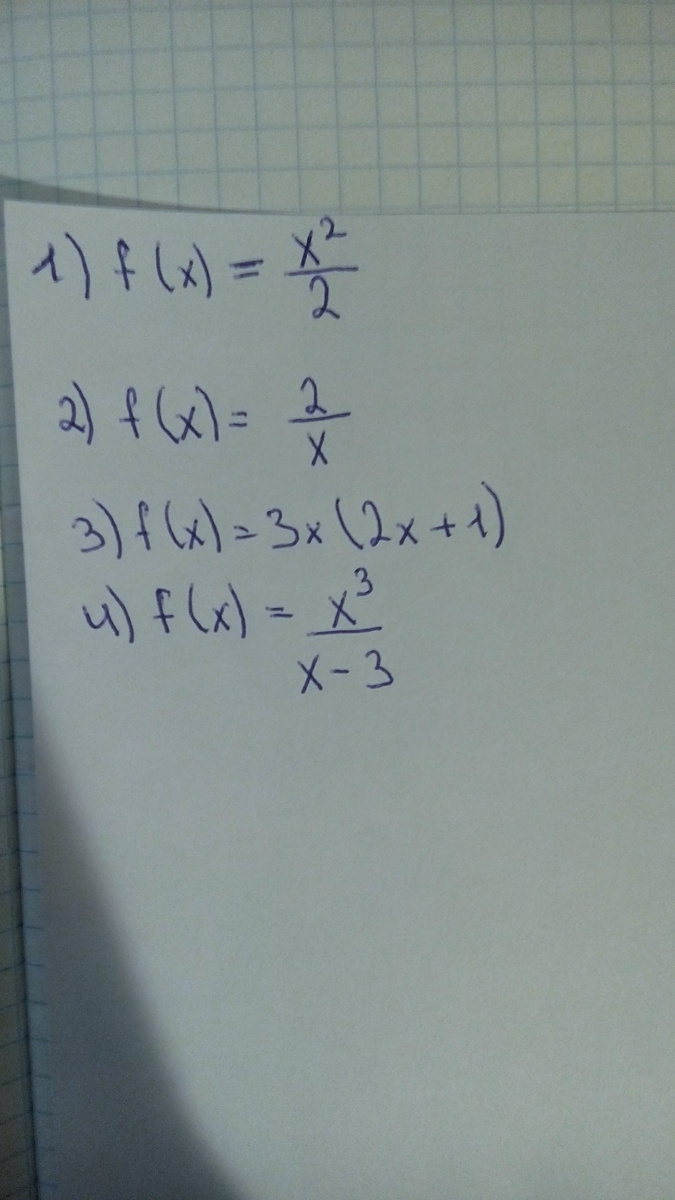 1) f(x) = x²/2
2) f(x) = 2/x
3) f(x) = 3x(2x+1)
4) f(x) = x³/(x-3)